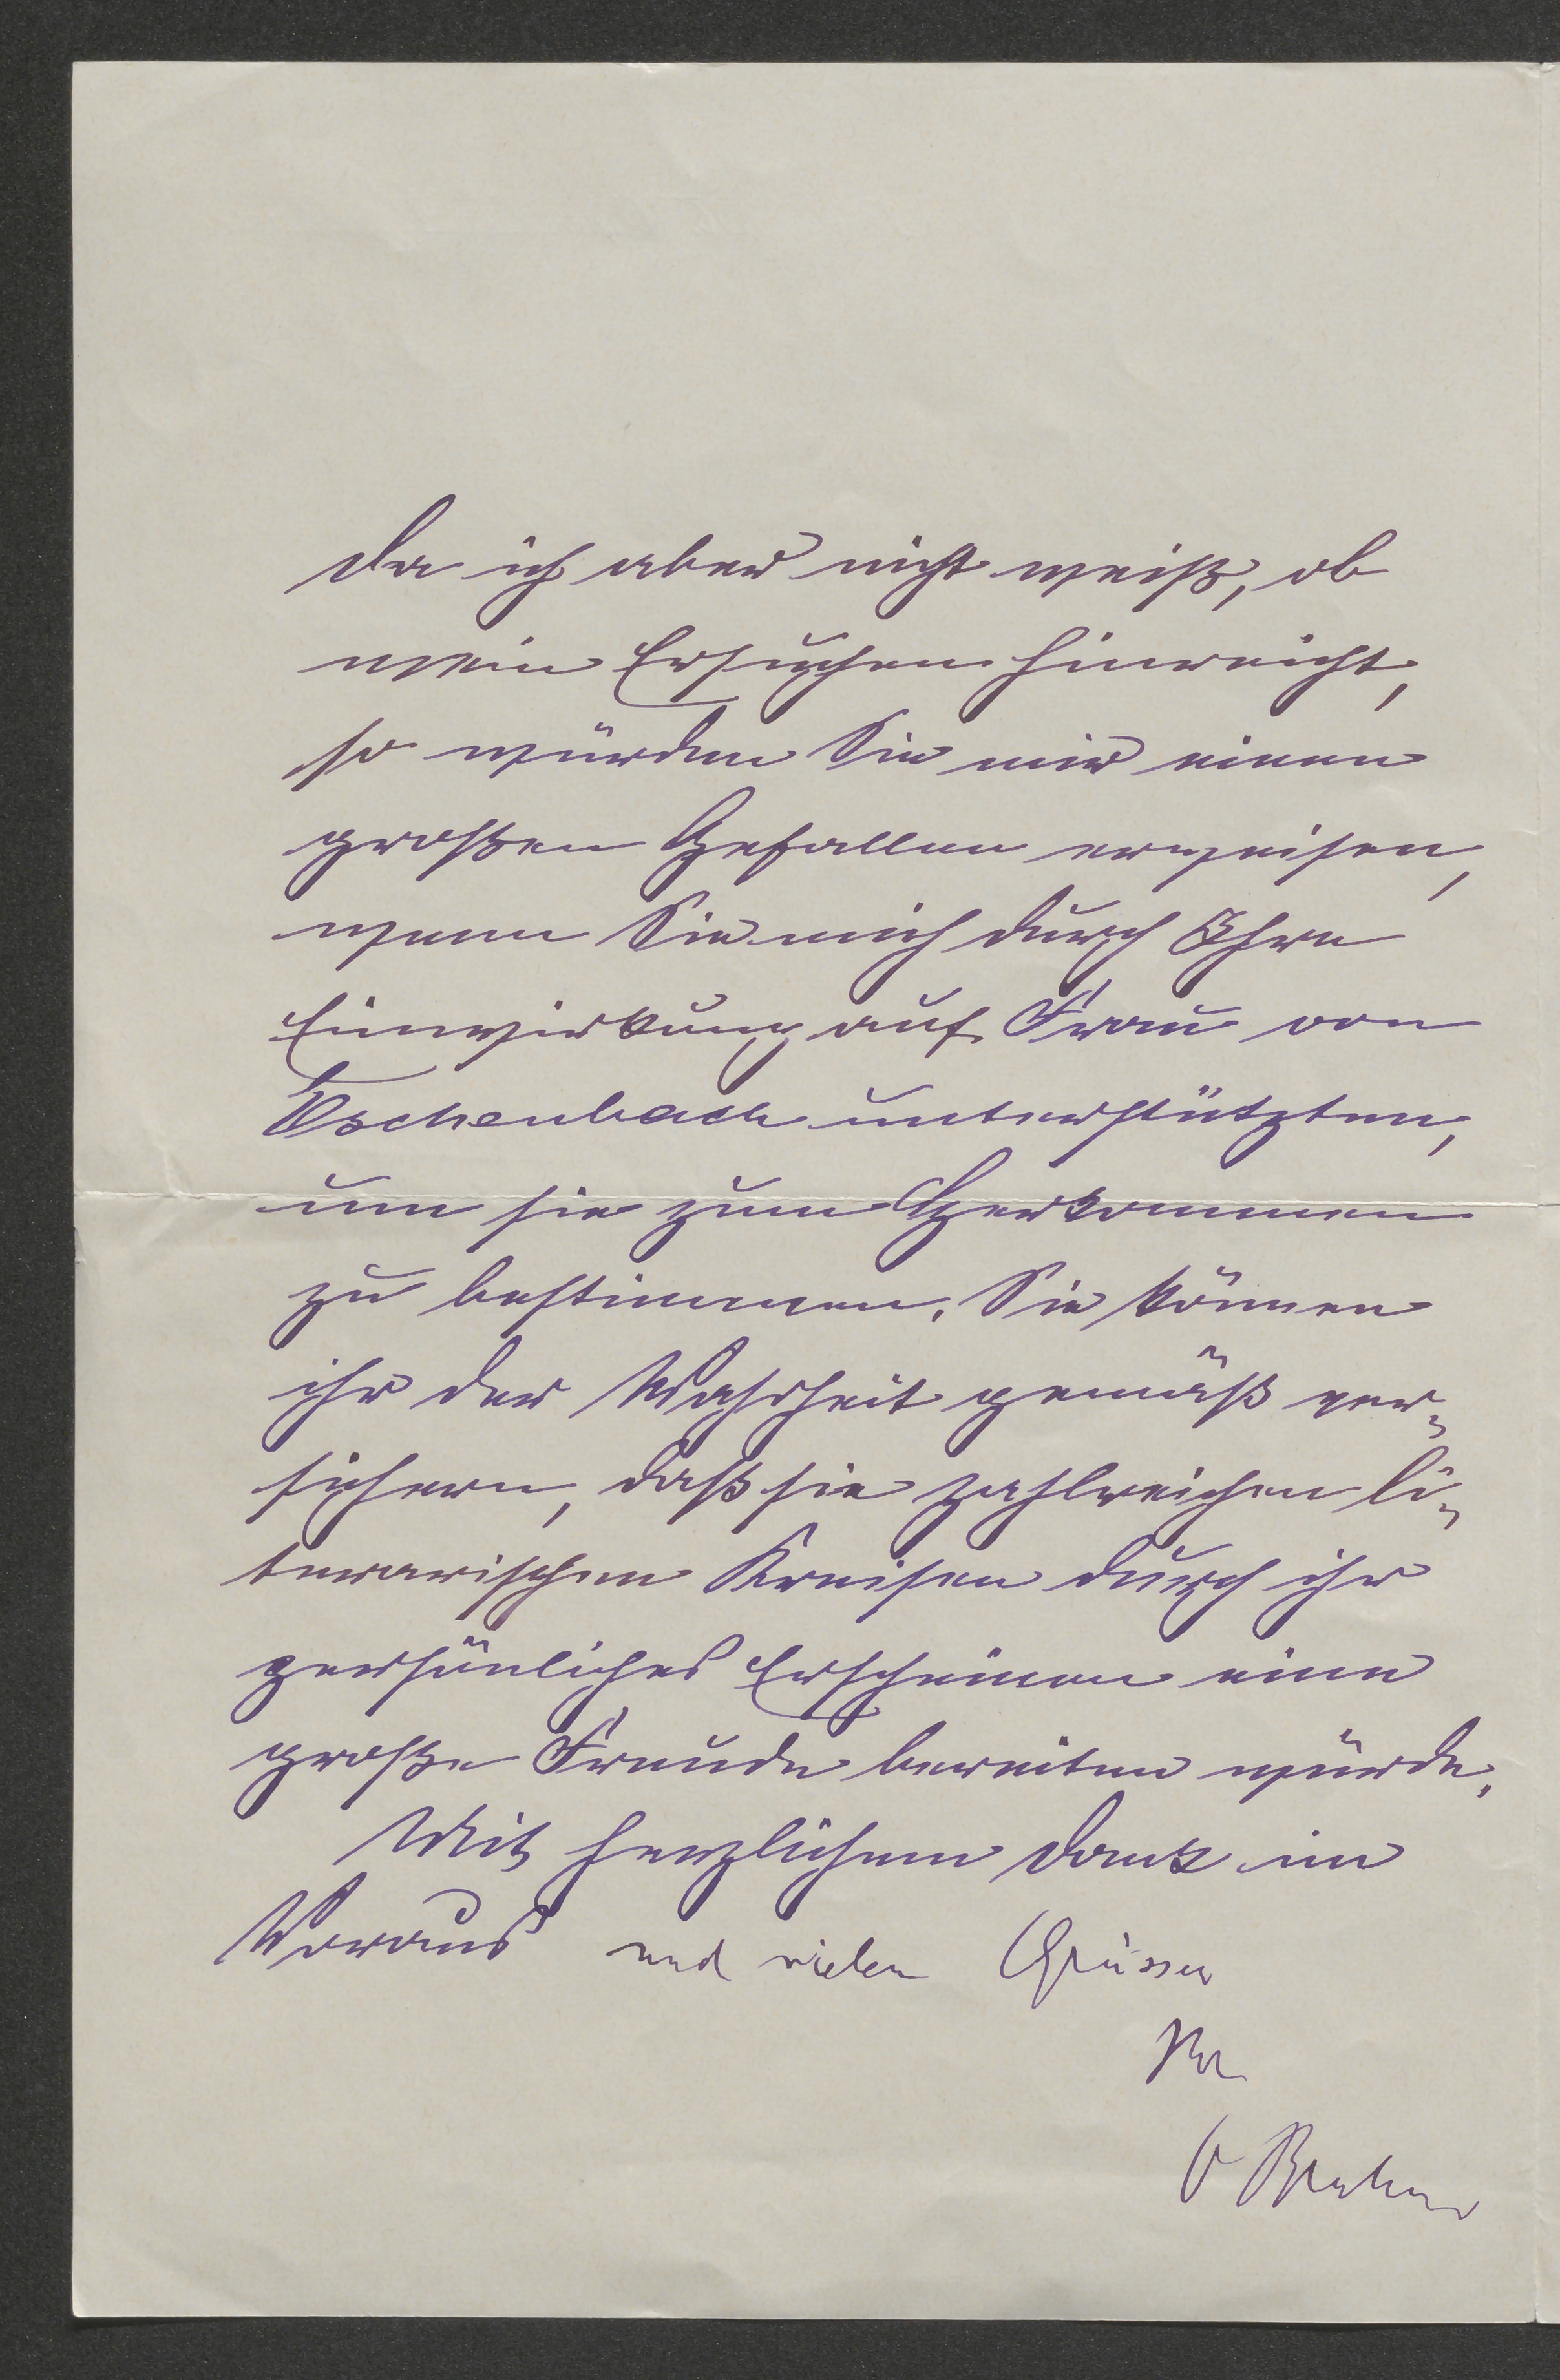 Da ich aber nicht weiß, ob
mein Ersuchen hinreicht,
so würden Sie mir einen
großen Gefallen erweisen,
wenn Sie mich durch Ihre
Einwirkung auf Frau von
Eschenbach unterstützten,
um sie zum Herkommen
zu bestimmen. Sie können
ihr der Wahrheit gemäß ver-
sichern, daß sie zahlreichen li-
terarischen Kreisen durch ihr
persönliches Erscheinen eine
große Freude bereiten würde.
Mit herzlichem Dank im
Voraus und vielen Grüssen
Ihr
O Brahm